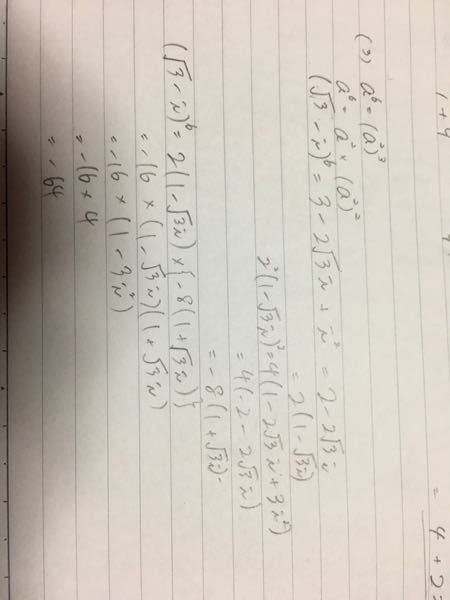 1 + 9
= 4 + 2
(3) a⁶ = (a²)³
a⁶ = a² × (a²)²
(√3 - i)⁶ = 3 - 2√3i + i² = 2 - 2√3i
= 2(1 - √3i)
2²(1 - √3i)² = 4(1 - 2√3i + 3i²)
= 4(-2 - 2√3i)
= -8(1 + √3i)
(√3 - i)⁶ = 2(1 - √3i) × {-8(1 + √3i)}
= -16 × (1 - √3i)(1 + √3i)
= -16 × (1 - 3i²)
= -16 × 4
= -64